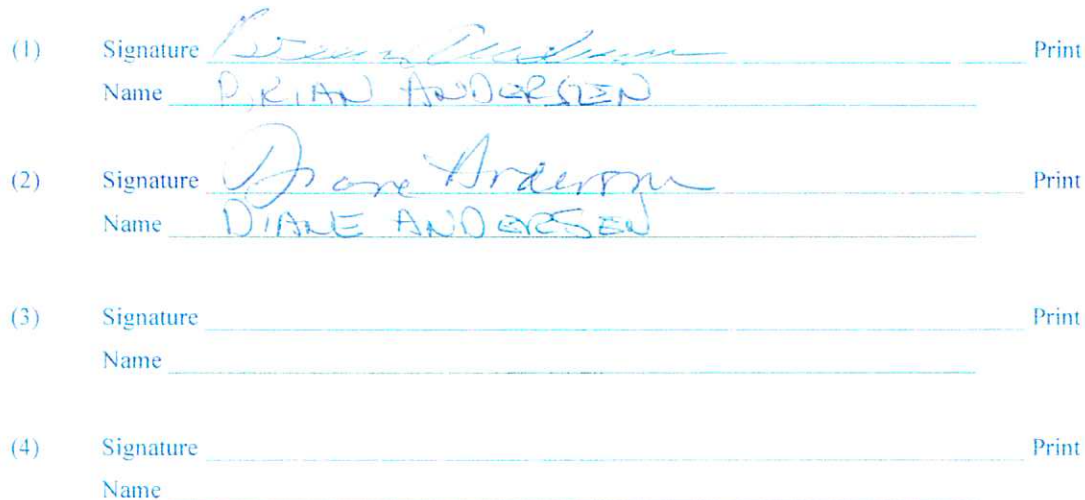 (1) Signature Brian Andersen Print
Name BRIAN ANDERSEN
(2) Signature Diane Andersen Print
Name DIANE ANDERSEN
(3) Signature Print
Name
(4) Signature Print
Name